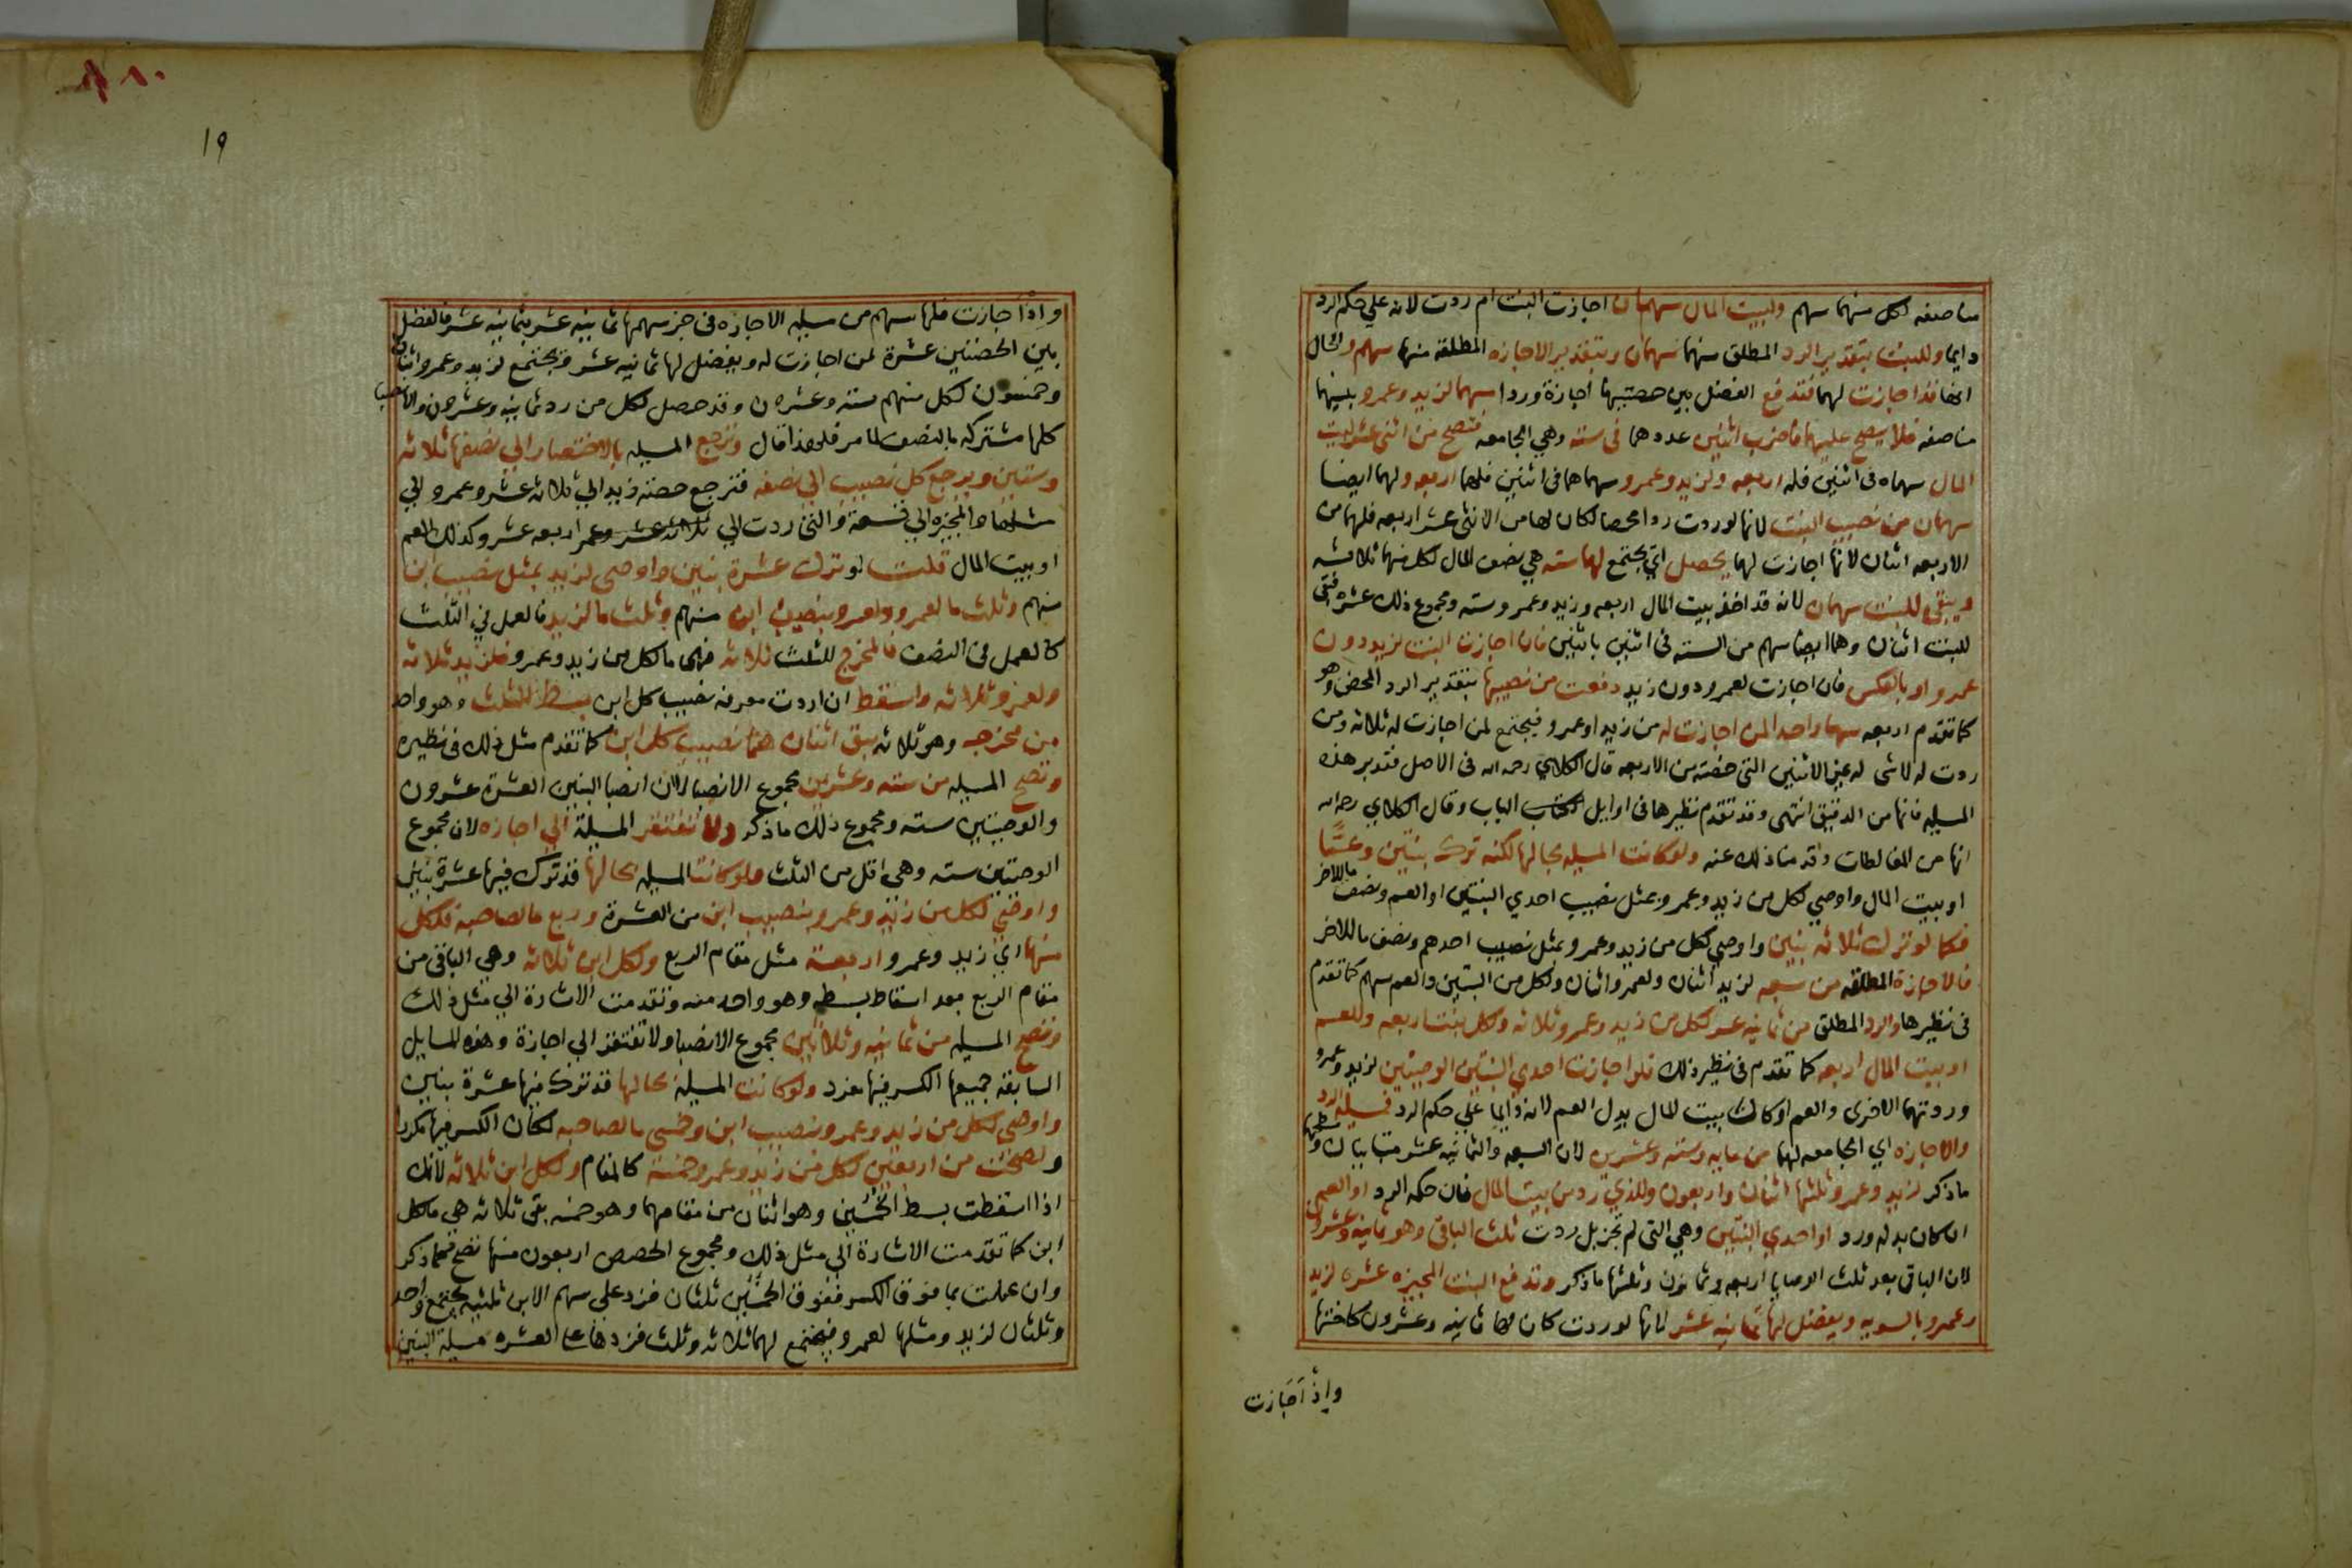 مناصفه لكل منهما سهم ولبيت المال سهمان اجازت البنت ام ردت لانه علي حكم الرد
دايما وللبنت بتقدير الرد المطلق منهما سهمان وبتقدير الاجازه المطلقة منها سهم والحال
انها فذا جازت لهما فتدفع الفضل بين حصتيها اجازة وردا سهما لزيد وعمرو بينهما
مناصفه فلا يصح عليهما فاضرب اثنين عددهما فى سته وهي الجامعه فتصح من اثنى عشر لبيت
المال سهماه فى اثنين فله اربعه ولزيد وعمرو سهماهما فى اثنين فلهما اربعه ولهما ايضا
سهمان من نصيب البنت لانها لو ردت ردا محضا لكان لها من الاثنى عشر اربعه فلهما من
الاربعه اثنان لانها اجازت لهما يحصل اي يجتمع لهما سته هي نصف المال لكل منهما ثلاثه
ويبقى للبنت سهمان لانه قد اخذ بيت المال اربعه وزيد وعمرو سته ومجموع ذلك عشره فبقى
للبنت اثنان وهما ايضا سهم من السته فى اثنين باثنين فان اجازت البنت لزيد دون
عمرو او بالعكس فان اجازت لعمرو دون زيد دفعت من نصيبها بتقدير الرد المحض وهو
كما تقدم اربعه سهما واحدا لمن اجازت له من زيد او عمرو فيجتمع لمن اجازت له ثلاثه ومن
ردت له لاشى له غير الاثنين التى خصته من الاربعه قال الكلاي رحمه الله فى الاصل فتدبر هذه
المسيله فانها من الدقيق انتهى وقد تقدم نظيرها فى اوايل الكتاب الباب وقال الكلاي رحمه الله
انها من المغالطات وقدمنا ذلك عنه ولو كانت المسيله بحالها لكنه ترك بنتين وعمًّا
او بيت المال واوصي لكل من زيد وعمرو بمثل نصيب احدي البنتين او العم ونصف ماللاخر
فكما لو ترك ثلاثه بنين واوصي لكل من زيد وعمرو بمثل نصيب احدهم ونصف ماللاخر
فالاجازة المطلقه من سبعه لزيد اثنان ولعمرو اثنان ولكل من البنتين والعم سهم كما تقدم
فى نظيرها والرد المطلق من ثمانيه عشر لكل من زيد وعمرو ثلاثه ولكل بنت اربعه وللعم
او بيت المال اربعه كما تقدم فى نظير ذلك فلو اجازت احدي البنتين الوصيتين لزيد وعمرو
وردتهما الاخرى والعم او كان بيت المال بدل العم لانه دايما علي حكم الرد فمسيله الرد
والاجازه اي الجامعه لهما من مايه وسته وعشرين لان السبعه والثمانيه عشر متباينان
ماذكر لزيد وعمرو ثلثها اثنان واربعون وللذي رد من بيت المال فان حكمه الرد او العم
ان كان بدله ورد او احدي البنتين وهي التى لم تجز بل ردت ثلث الباقى وهو ثمانيه وعشرون
لان الباقى بعد ثلث الوصايا اربعه وثمانون وثلثها ماذكر وتدفع البنت المجيزه عشره لزيد
وعمرو بالسويه ويفضل لها ثمانيه عشر لانها لو ردت كان لها ثمانيه وعشرون كاختها
واذا اجازت
١٩
واذا اجازت فلها سهم من مسيله الاجازه فى جز سهمها ثمانيه عشر بثمانيه عشر فالفضل
بين الحصتين عشرة لمن اجازت له ويفضل لها ثمانيه عشر ويجتمع لزيد وعمرو اثنان
وخمسون لكل منهم سته وعشرون وقد حصل لكل من رد ثمانيه وعشرون والانصبا
كلها مشتركه بالنصف لما مر فلهذا قال وترجع المسيله بالاختصار الي نصفها ثلاثه
وستين ويرجع كل نصيب الي نصفه فترجع حصه زيد الي ثلاثه عشر وعمرو الي
مثلها والمجيزه الي تسعة والتى ردت الي ثلاثه عشر وعمر اربعه عشر وكذلك العم
او بيت المال قلت لو ترك عشرة بنين واوصى لزيد بمثل نصيب ابن
منهم وثلث ما لعمرو ولعمرو بنصيب ابن منهم وثلث ما لزيد فالعمل في الثلث
كالعمل فى النصف فالمخرج للثلث ثلاثه فهى ما لكل من زيد وعمرو فلزيد ثلاثه
ولعمرو ثلاثه واسقط ان اردت معرفه نصيب كل ابن بسط الثلث وهو واحد
من مخرجه وهو ثلاثه يبق اثنان هما نصيب كل ابن كما تقدم مثل ذلك فى نظيره
وتصح المسيله من سته وعشرين مجموع الانصبا لان انصبا البنين العشرة عشرون
والوصيتين سته ومجموع ذلك ماذكر ولا تفتقر المسيلة الي اجازه لان مجموع
الوصيتين سته وهي اقل من الثلث ولو كانت المسيله بحالها قد ترك فيها عشرة بنين
واوصي لكل من زيد وعمرو بنصيب ابن من العشرة وربع ما لصاحبه فلكل
منهما اي زيد وعمرو اربعة مثل مقام الربع ولكل ابن ثلاثه وهي الباقى من
مقام الربع بعد اسقاط بسطه وهو واحد منه وتقدمت الاشارة الي مثل ذلك
وتصح المسيله من ثمانيه وثلاثين مجموع الانصبا ولا تفتقر الى اجازة وهذه المسايل
السابقه جميعها الكسر فيها مفرد ولو كانت المسيله بحالها قد ترك فيها عشرة بنين
واوصي لكل من زيد وعمرو بنصيب ابن وخمسى ما لصاحبه لكان الكسر فيها مكررا
ولصحت من اربعين لكل من زيد وعمرو خمسة كالمقام ولكل ابن ثلاثه لانك
اذا اسقطت بسط الخمسين وهو اثنان من مقامهما وهو خمسه بقى ثلاثه هي ما لكل
ابن كما تقدمت الاشارة الي مثل ذلك ومجموع الحصص اربعون منها تصح فماذكر
وان عملت بما فوق الكسر ففوق الخمسين ثلثان فزد على سهم الابن ثلثيه يجتمع واحد
وثلثان لزيد ومثلها لعمرو فيجتمع لهما ثلاثه وثلث فزدها علي العشره مسيلة البنين